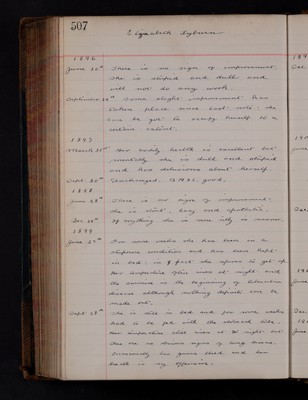 507
Elizabeth
1896
June 30th There is no sign of improvement.
She is stupid and dull and
will not do any work.
September Some slight improvement has
taken place since last note: she
can be got to occupy herself to a
certain extent.
1897
March 31st Her bodily health is excellent but
mentally she is dull and stupid
and has delusions about herself.
Sept. 30th Unchanged. B.H. is good.
1898
June 28th There is no sign of improvement:
she is silent, lazy and apathetic.
Dec. If anything she is more silly in manner.
1899
June For some weeks she has been in a
stuporose condition and has been kept
in bed: in fact she refuses to get up.
Her temperature rises at night and
the is the beginning of tubercular
disease although nothing definite can be
made out.
Sept. 28th She is still in bed and for some weeks
had to be fed with the stomach tube.
Her temperature still rises at night but
there are no obvious signs of lung disease.
Occasionally her gums bleed and her
breath is very offensive.